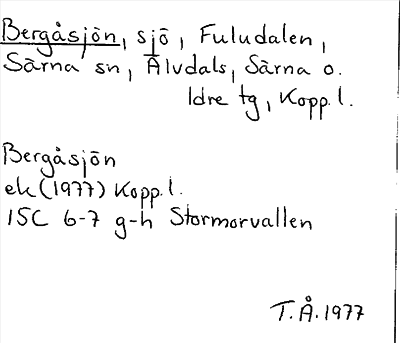 Bergåsjön, sjö, Fuludalen,
Särna sn, Älvdals, Särna o.
Idre tg, Kopp. l.
Bergåsjön
ek (1977) Kopp. l.
15C 6-7 g-h Stormorvallen
T.Å. 1977